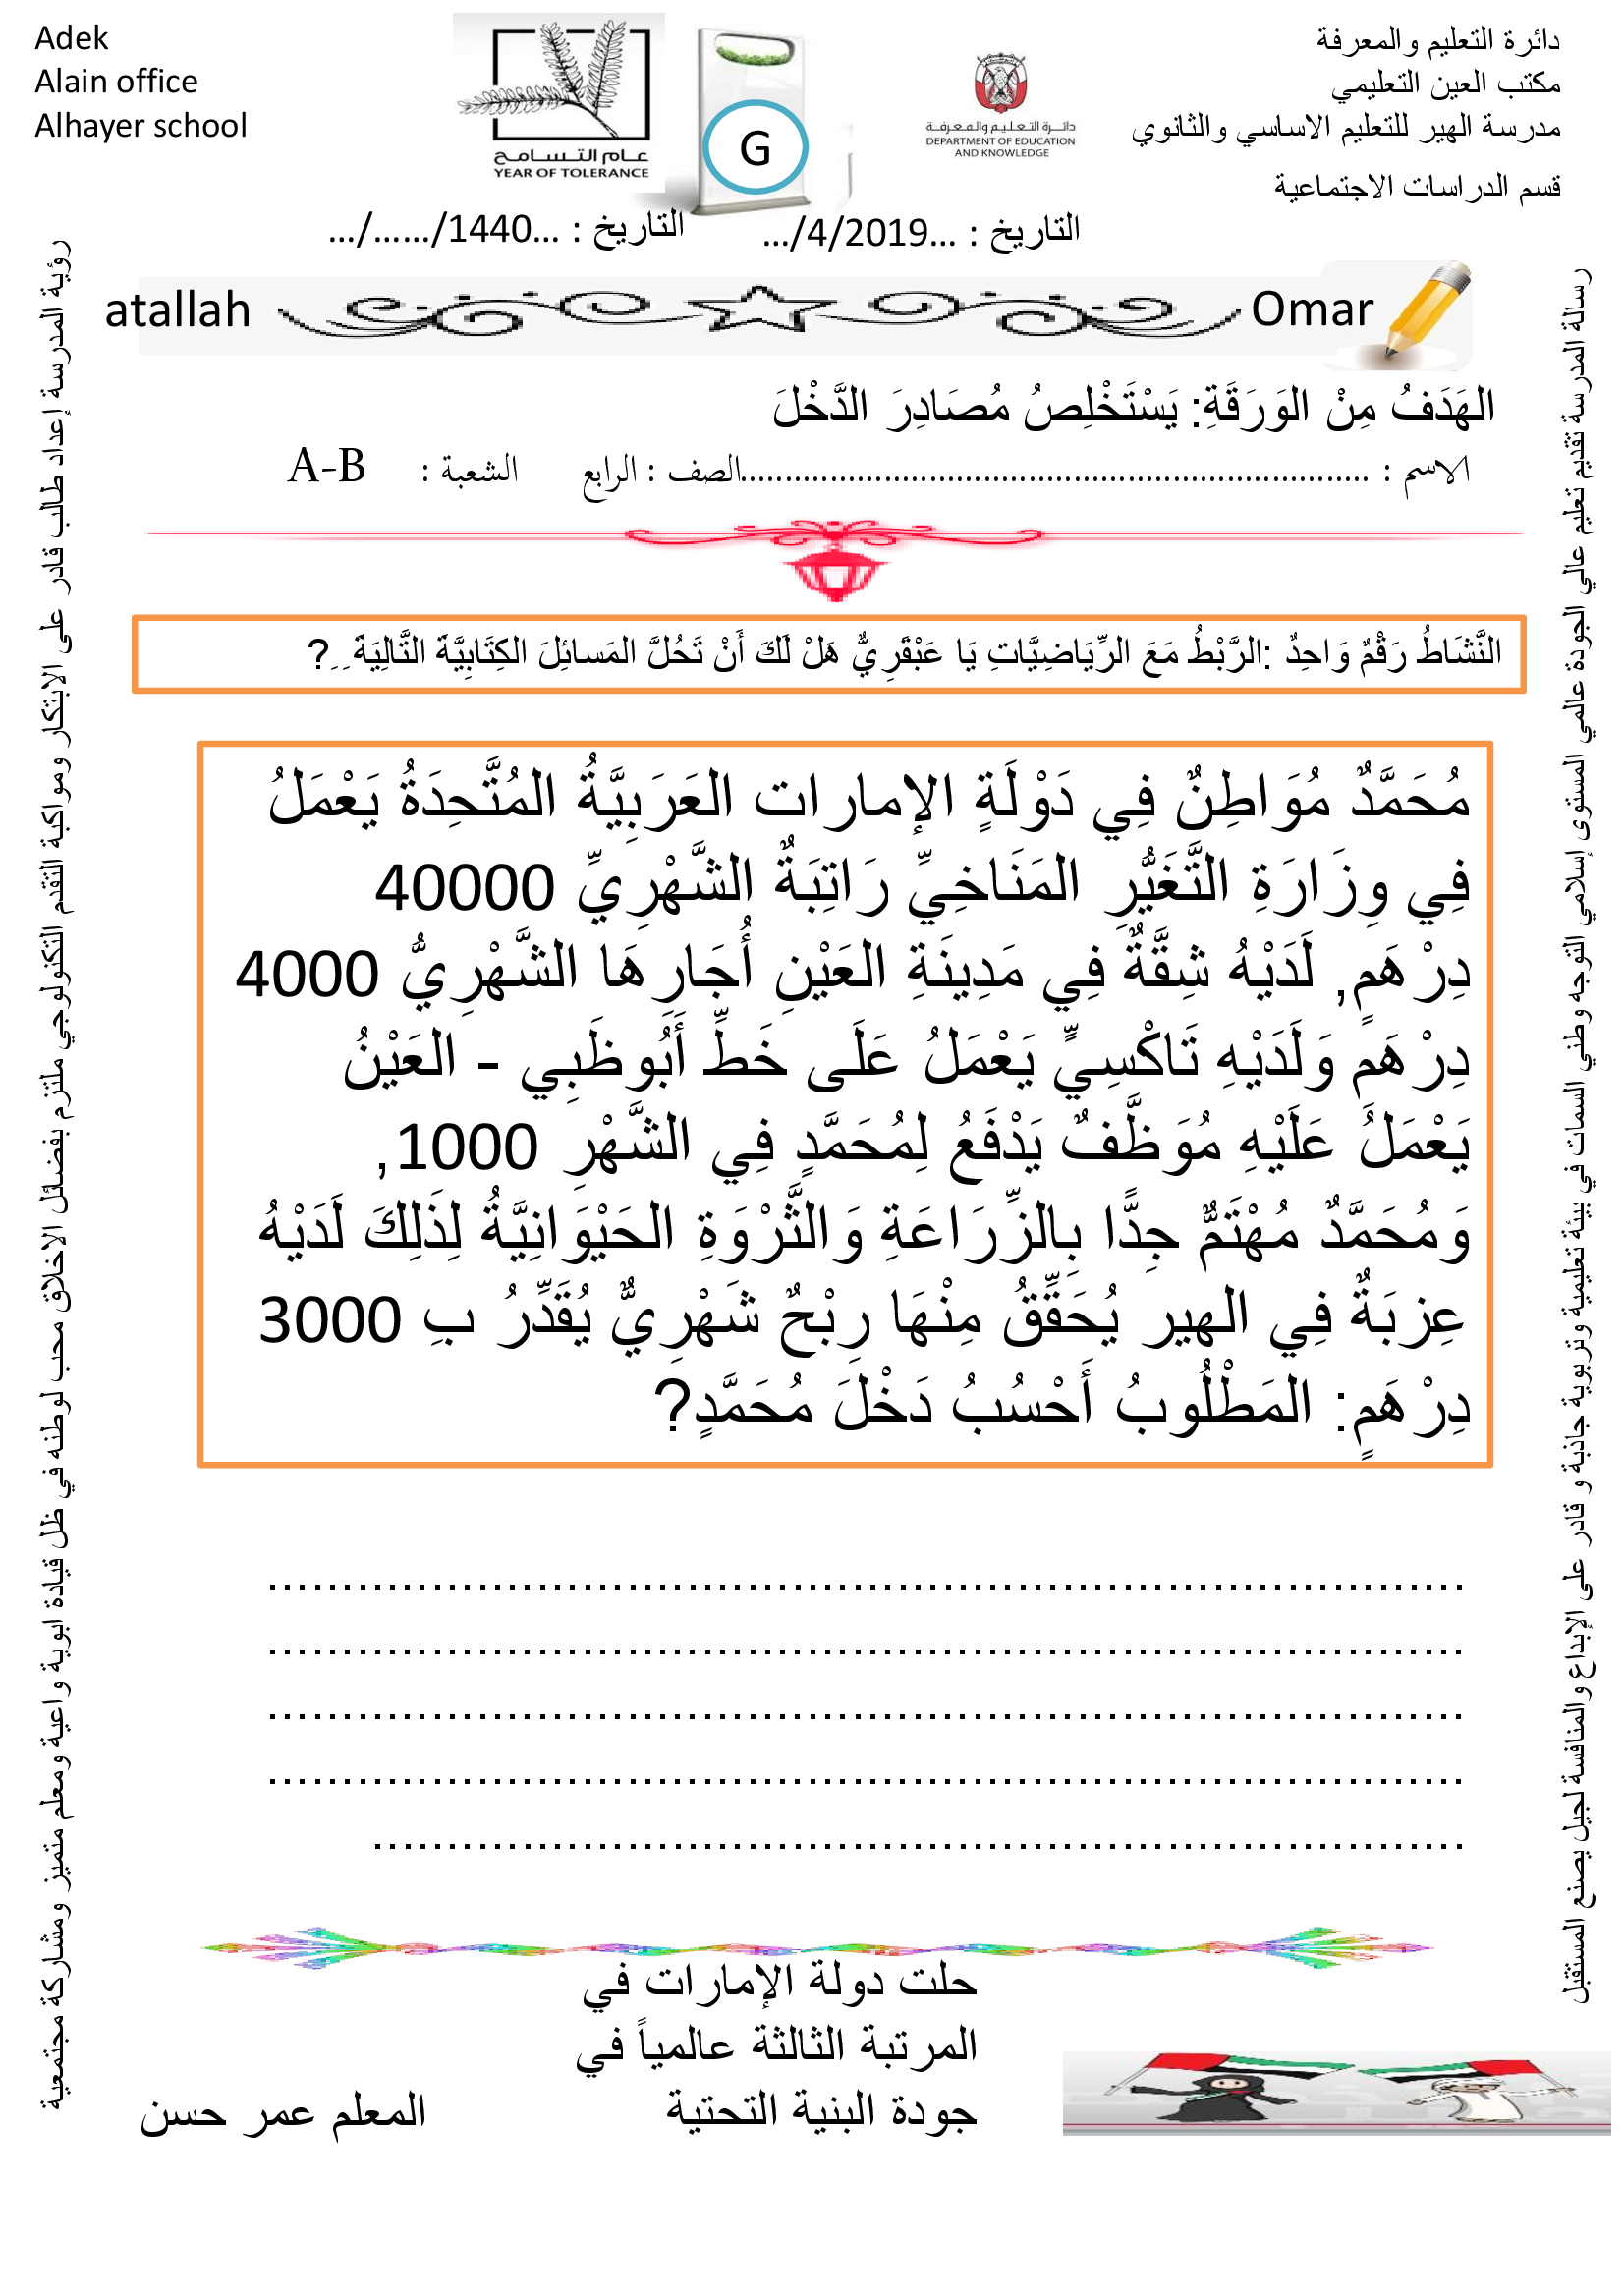 Adek
Alain office
Alhayer school
عـام التـسـامـح
YEAR OF TOLERANCE
G
دائـرة التـعـليـم والـمـعـرفـة
DEPARTMENT OF EDUCATION
AND KNOWLEDGE
دائرة التعليم والمعرفة
مكتب العين التعليمي
مدرسة الهير للتعليم الاساسي والثانوي
قسم الدراسات الاجتماعية
التاريخ : ...2019/4/...
التاريخ : ...1440/....../...
Omar
atallah
الهَدَفُ مِنْ الوَرَقَةِ: يَسْتَخْلِصُ مُصَادِرَ الدَّخْلَ
الاسم : ......................................................................الصف : الرابع الشعبة : A-B
النَّشَاطُ رَقْمٌ وَاحِدٌ :الرَّبْطُ مَعَ الرِّيَاضِيَّاتِ يَا عَبْقَرِيٌّ هَلْ لَكَ أَنْ تَحُلَّ المَسائِلَ الكِتَابِيَّةَ التَّالِيَةَ ..?
مُحَمَّدٌ مُوَاطِنٌ فِي دَوْلَةٍ الإمارات العَرَبِيَّةُ المُتَّحِدَةُ يَعْمَلُ
فِي وِزَارَةِ التَّغَيُّرِ المَنَاخِيِّ رَاتِبَةٌ الشَّهْرِيِّ 40000
دِرْهَمٍ, لَدَيْهُ شِقَّةٌ فِي مَدِينَةِ العَيْنِ أُجَارِهَا الشَّهْرِيُّ 4000
دِرْهَمٍ وَلَدَيْهِ تَاكْسِيٍّ يَعْمَلُ عَلَى خَطِّ أَبُوظَبِي - العَيْنُ
يَعْمَلُ عَلَيْهِ مُوَظَّفٌ يَدْفَعُ لِمُحَمَّدٍ فِي الشَّهْرِ 1000,
وَمُحَمَّدٌ مُهْتَمٌّ جِدًّا بِالزِّرَاعَةِ وَالثَّرْوَةِ الحَيْوَانِيَّةُ لِذَلِكَ لَدَيْهُ
عِزبَةٌ فِي الهير يُحَقِّقُ مِنْهَا رِبْحٌ شَهْرِيٌّ يُقَدِّرُ بِ 3000
دِرْهَمٍ: المَطْلُوبُ أَحْسُبُ دَخْلَ مُحَمَّدٍ?
حلت دولة الإمارات في
المرتبة الثالثة عالمياً في
جودة البنية التحتية
المعلم عمر حسن
رؤية المدرسة إعداد طالب قادر على الابتكار ومواكبة التقدم التكنولوجي ملتزم بفضائل الاخلاق محب لوطنه في ظل قيادة ابوية واعية ومعلم متميز ومشاركة مجتمعية
رسالة المدرسة تقديم تعليم عالي الجودة عالمي المستوى إسلامي التوجه وطني السمات في بيئة تعليمية وتربوية جاذبة و قادر على الإبداع والمنافسة لجيل يصنع المستقبل